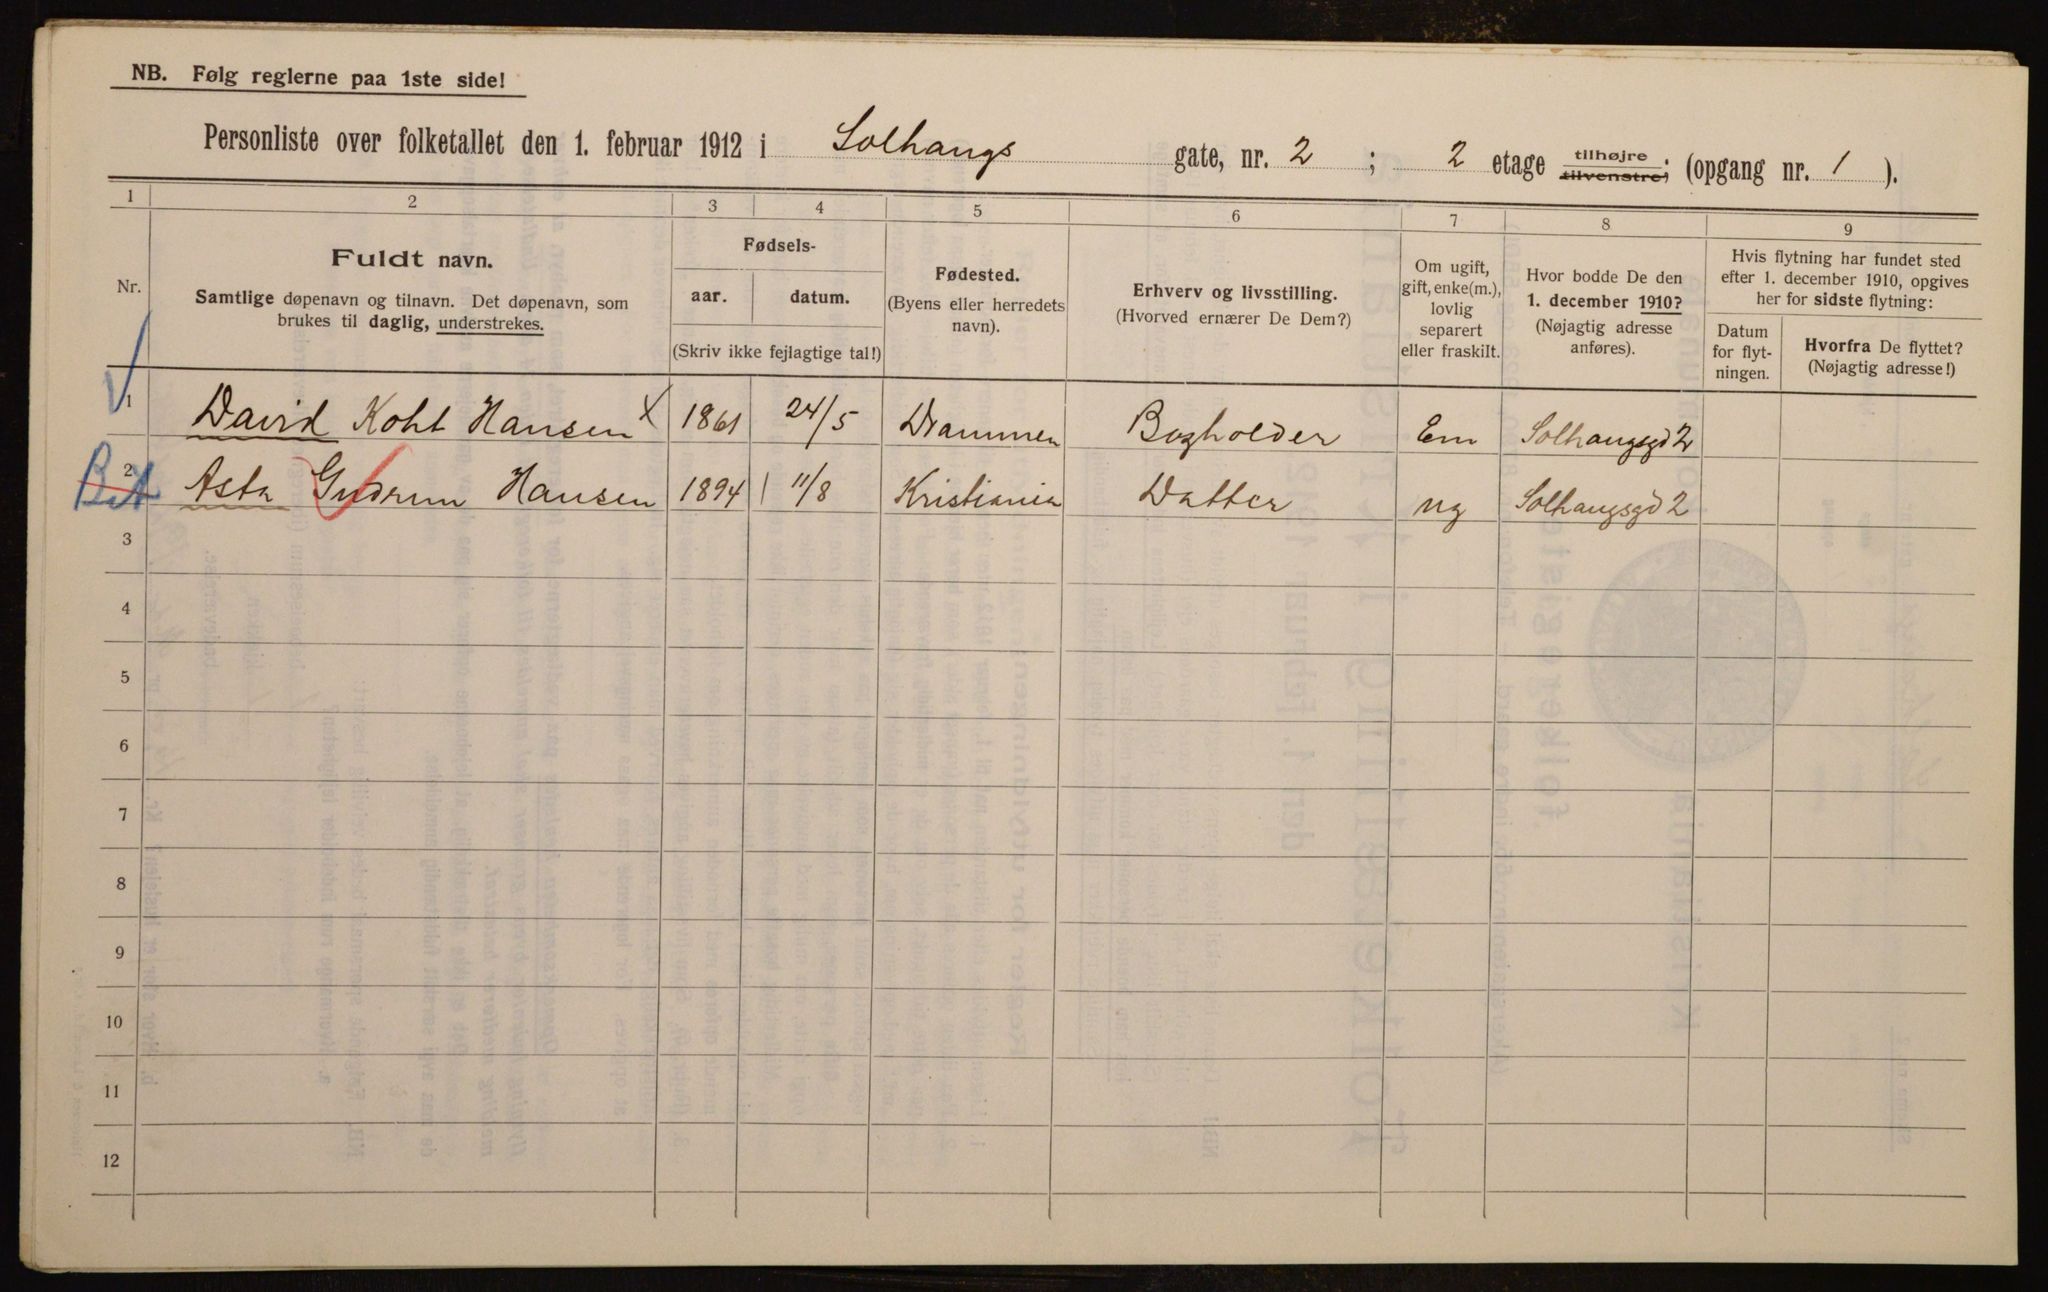 NB. Følg reglerne paa 1ste side!
Personliste over folketallet den 1. februar 1912 i Solhangs gate, nr. 2 ; 2 etage tilhøjre tilvenstre; (opgang nr. 1 ).
1 2 3 4 5 6 7 8 9
Nr.
Fuldt navn.
Samtlige døpenavn og tilnavn. Det døpenavn, som
brukes til daglig, understrekes.
Fødsels-
aar. datum.
(Skriv ikke fejlagtige tal!)
Fødested.
(Byens eller herredets
navn).
Erhverv og livsstilling.
(Hvorved ernærer De Dem?)
Om ugift,
gift, enke(m.),
lovlig
separert
eller fraskilt.
Hvor bodde De den
1. december 1910?
(Nøjagtig adresse
anføres).
Hvis flytning har fundet sted
efter 1. december 1910, opgives
her for sidste flytning:
Datum
for flyt-
ningen.
Hvorfra De flyttet?
(Nøjagtig adresse!)
1 David Koht Hansen x 1861 24/5 Drammen Bogholder Em Solhangsgd 2
2 Asta Gudrun Hansen 1894 11/8 Kristiania Datter ug Solhangsgd 2
3
4
5
6
7
8
9
10
11
12